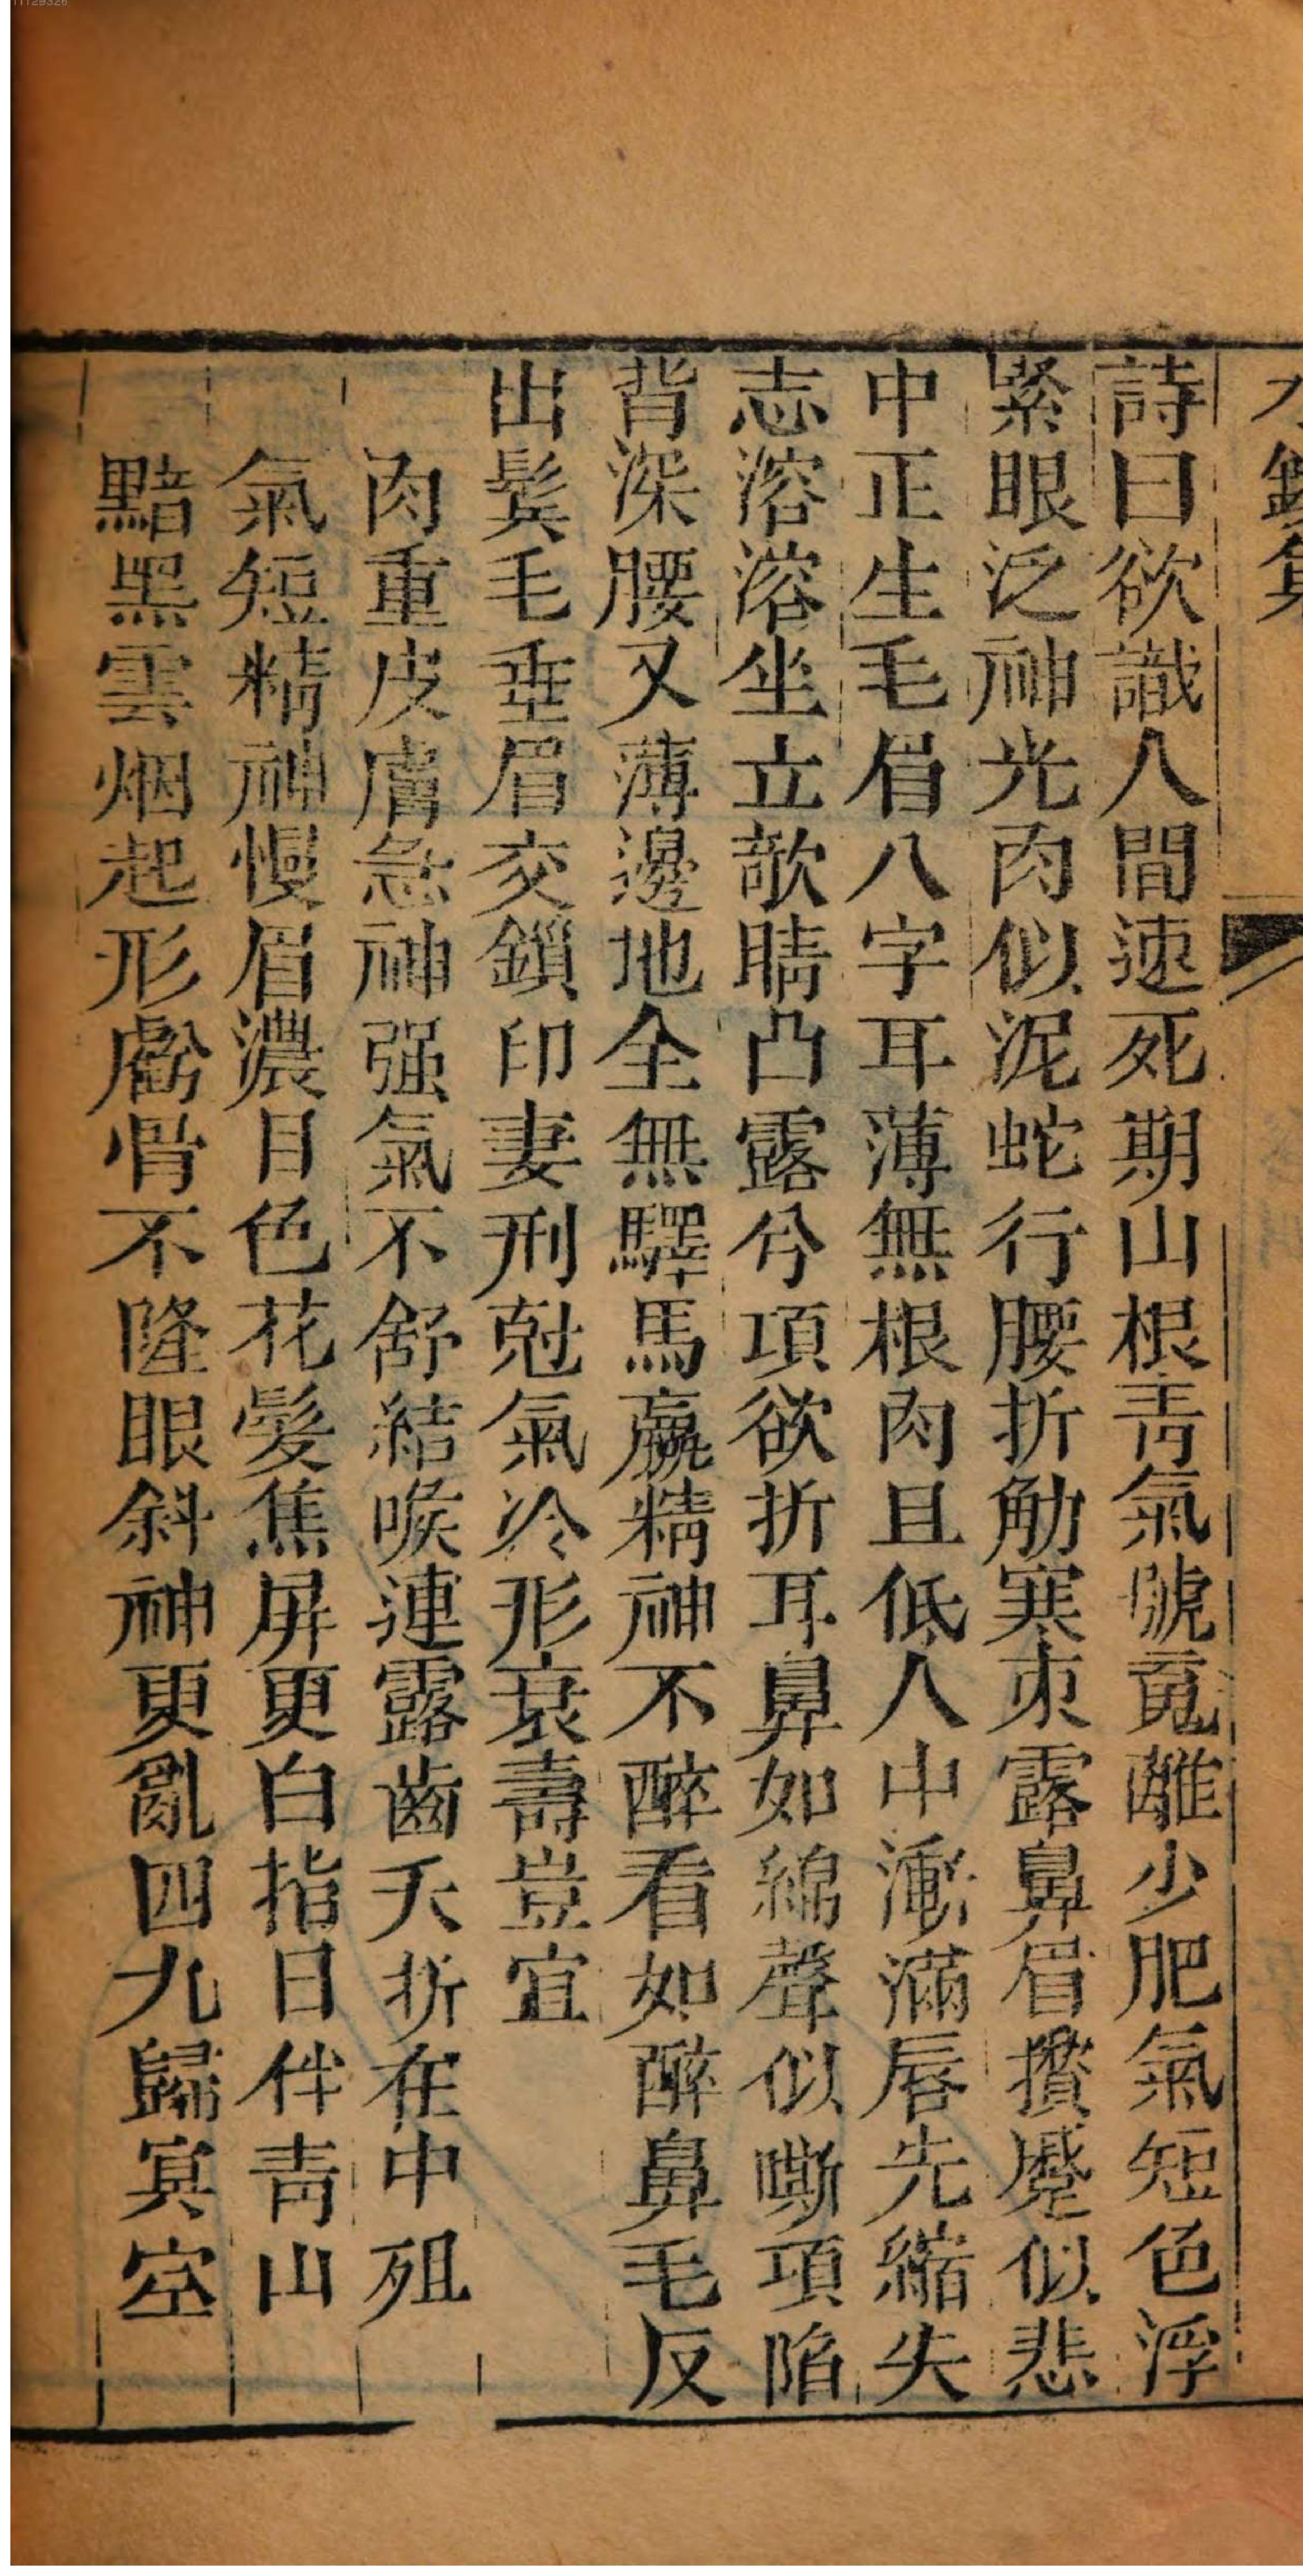 11129326
詩曰欲識人間速死期山根靑氣號䰟離少肥氣短色浮
緊眼泛神光肉似泥蛇行腰折觔寒朿露鼻眉攢蹙似悲
中正生毛眉八字耳薄無根肉且低人中漸滿唇先縮失
志溶溶坐立欹睛凸露兮項欲折耳鼻如綿聲似嘶項陷
背深腰又薄邊地全無驛馬羸精神不醉看如醉鼻毛反
出鬂毛垂眉交鎖印妻刑尅氣冷形衰壽豈宜
肉重皮膚急神强氣不舒結喉連露齒夭折在中殂
氣短精神慢眉濃目色花髮焦屏更白指日伴靑山
黯黑雲烟起形虧骨不隆眼斜神更亂四九歸冥空